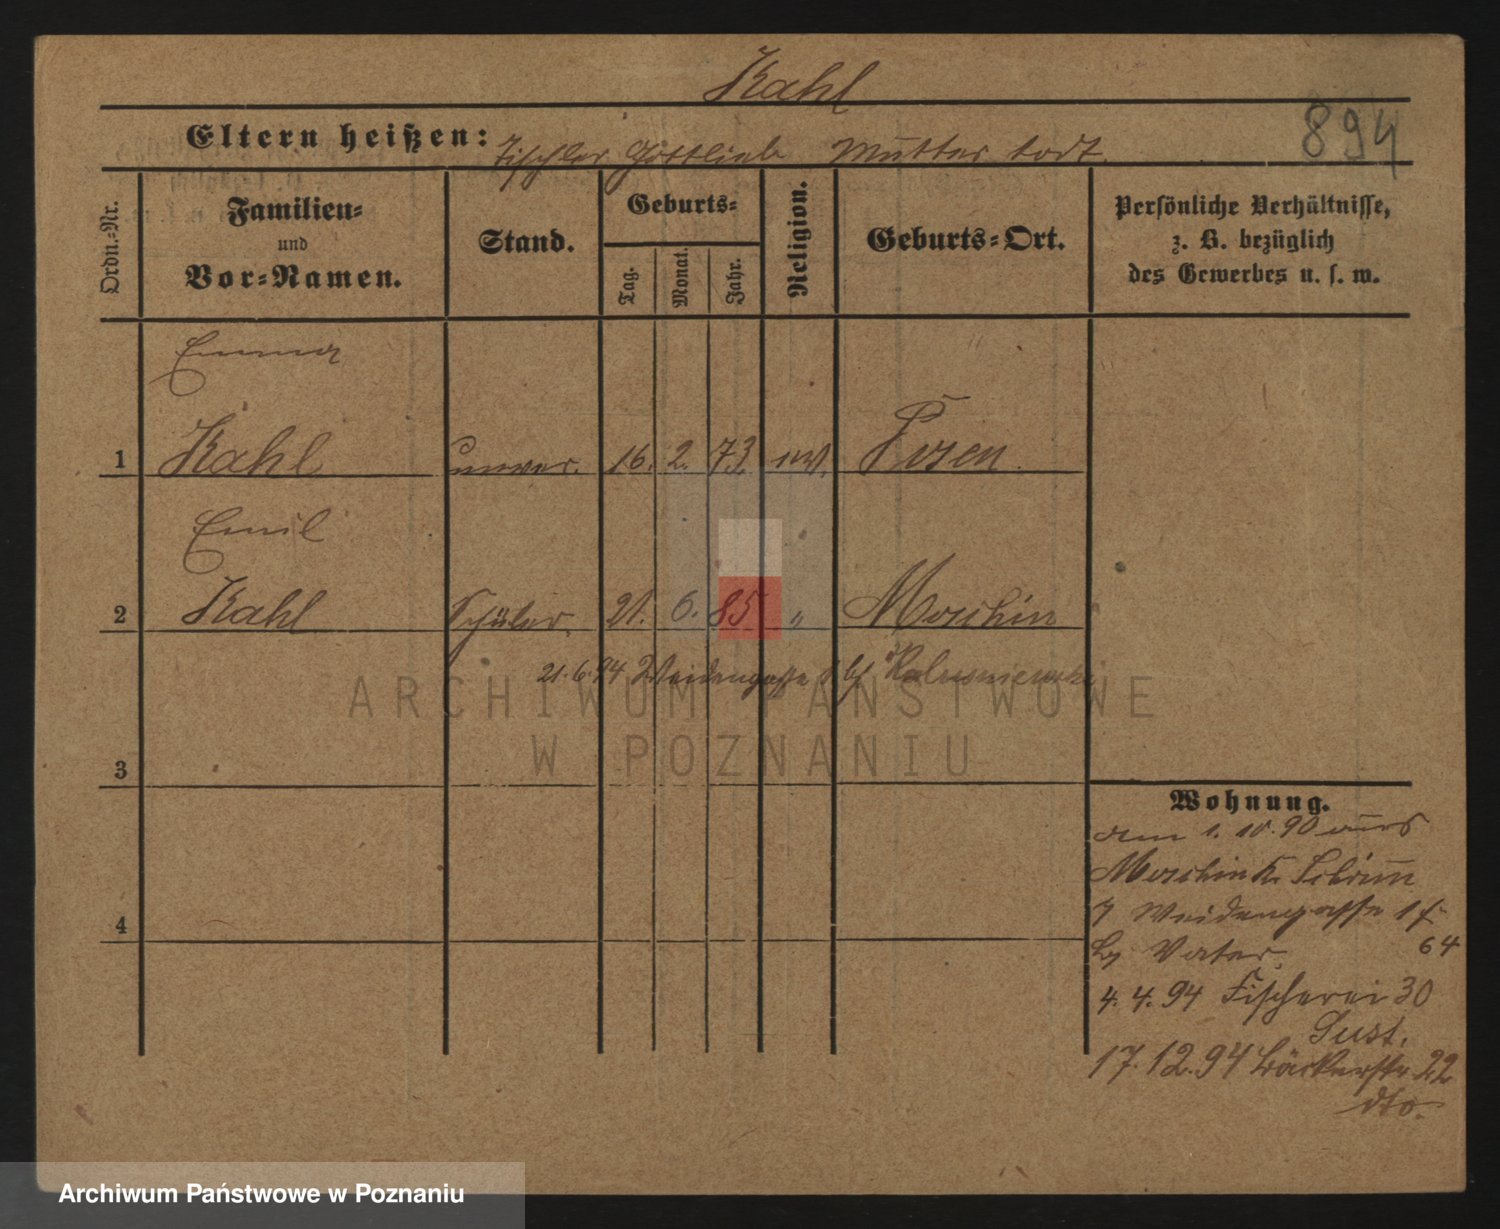 Kahl
894
Eltern heißen: Tischler Gottlieb Mutter todt.
Ordn.=Nr.
Familien=
und
Vor=Namen.
Stand.
Geburts=
Tag.
Monat.
Jahr.
Religion.
Geburts=Ort.
Persönliche Verhältnisse,
z. B. bezüglich
des Gewerbes u. s. w.
Emma
1 Kahl unver. 16. 2. 73. ev. Posen
Emil
2 Kahl Schüler. 21. 6. 85 „ Moschin
21.6.94 Weidengasse
ARCHIWUM PAŃSTWOWE
W POZNANIU
3
4
Wohnung.
am 1. 10. 90 aus
Moschin K. Schrimm
Weidengasse 1
by Vater. 64
4. 4. 94 Fischerei 30
Sust.
17. 12. 94 Bäckerstr. 22
dto.
Archiwum Państwowe w Poznaniu